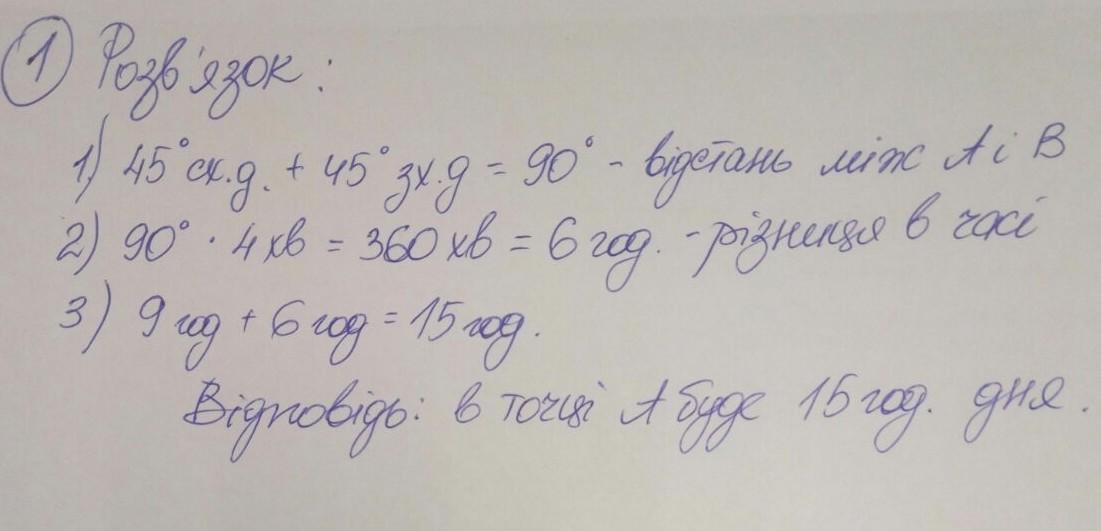 1 Розв'язок:
1) 45° сх.д. + 45° зх.д = 90° - відстань між А і В
2) 90° · 4 хв = 360 хв = 6 год. - різниця в часі
3) 9 год + 6 год = 15 год.
Відповідь: в точці А буде 15 год. дня.